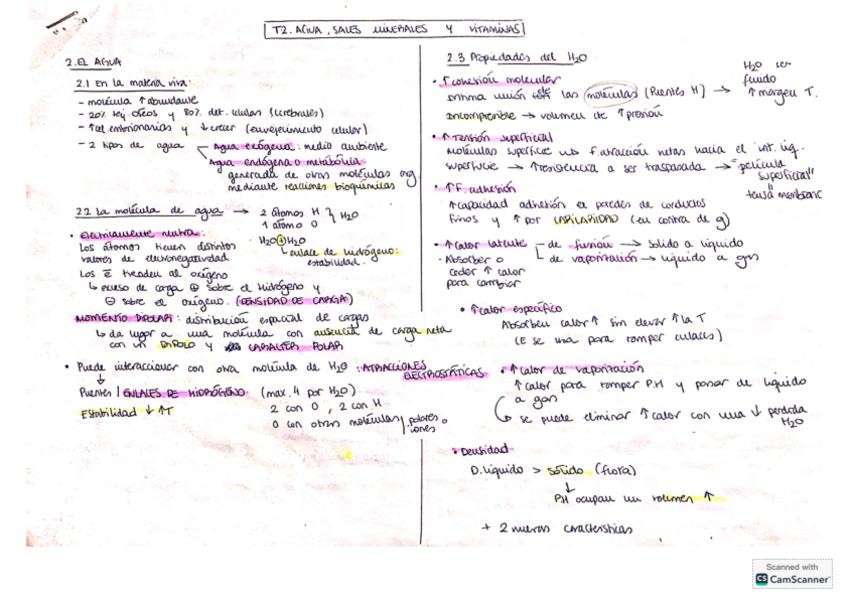 T2. AGUA, SALES MINERALES Y VITAMINAS
2. EL AGUA
2.1 En la materia viva:
- molécula ↑ abundante
- 20% tej. óseos y 80% det. células (cerebrales)
- ↑ al. embrionarios y ↓ crecer (envejecimiento celular)
- 2 tipos de agua
Agua exógena: medio ambiente
Agua endógena o metabólica
generada de otras moléculas org
mediante reacciones bioquímicas
2.2 La molécula de agua → 2 átomos H
1 átomo O
H₂O
• Eléctricamente neutra:
Los átomos tienen distintos
valores de electronegatividad
Los e̅ tienden al oxígeno
↳ exceso de carga ⊕ sobre el hidrógeno y
⊖ sobre el oxígeno. (DENSIDAD DE CARGA)
H₂O H₂O
↳ enlace de hidrógeno:
estabilidad.
MOMENTO DIPOLAR: distribución espacial de cargas
↳ da lugar a una molécula con ausencia de carga neta
con un DIPOLO y CARÁCTER POLAR
• Puede interaccionar con otra molécula de H₂O: ATRACCIONES
ELECTROSTÁTICAS
↓
Puentes / ENLACES DE HIDRÓGENO (max. 4 por H₂O)
Estabilidad ↓ ↑T
2 con O, 2 con H
O con otras moléculas polares o
iones
2.3 Propiedades del H₂O
• ↑ cohesión molecular
íntima unión las moléculas (Puentes H) →
H₂O ser
fluido
↑ margen T.
Incomprensible → volumen de ↑ presión
• ↑ Tensión superficial
Moléculas superficie F. atracción netas hacia el int. líq.
superficie → ↑ resistencia a ser traspasada → "película
superficial"
tensa membrana
• ↑ F. adhesión
↑ capacidad adhesión en paredes de conductos
finos y ↑ por CAPILARIDAD (en contra de g)
• ↑ Calor latente
- de fusión → sólido a líquido
- de vaporización → líquido a gas
• Absorber o
ceder ↑ calor
para cambiar
• ↑ calor específico
Absorben calor ↑ sin elevar ↑ la T
(E se usa para romper enlaces)
• ↑ Calor de vaporización
↑ calor para romper P.H y pasar de líquido
a gas
↳ se puede eliminar ↑ calor con una ↓ pérdida
H₂O
• Densidad
D. líquido > sólido (flota)
↓
P.H ocupan un volumen ↑
+ 2 nuevas características
Scanned with
CS CamScanner